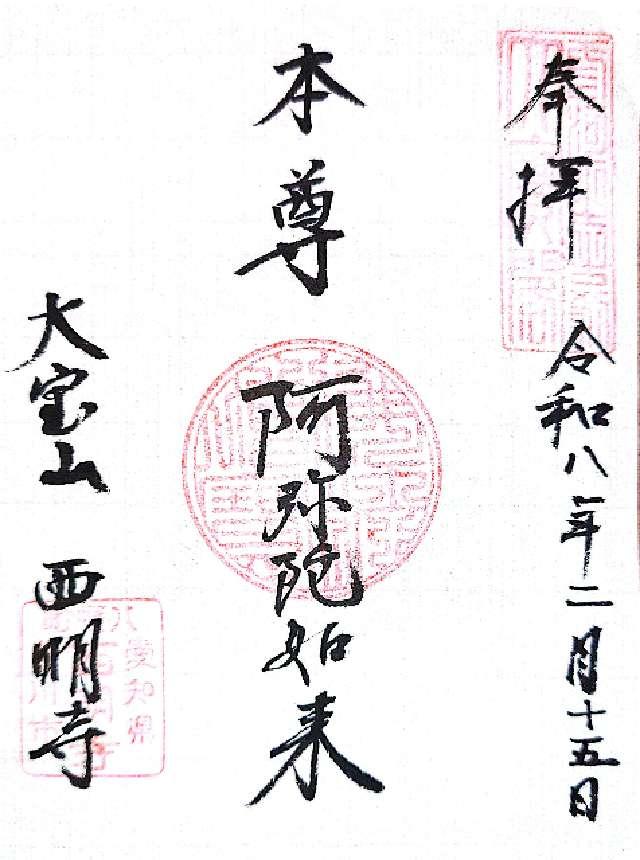 奉拝
令和八年二月十五日
本尊
阿弥陀如来
大宝山 西明寺
愛知県